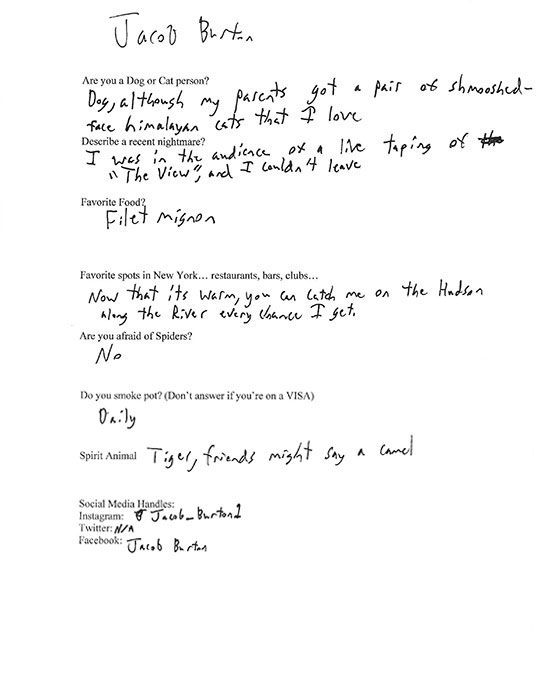 Jacob Burton
Are you a Dog or Cat person?
Dog, although my parents got a pair of shmooshed-
face himalayan cats that I love
Describe a recent nightmare?
I was in the audience of a live taping of the
"The View", and I couldn't leave
Favorite Food?
Filet mignon
Favorite spots in New York… restaurants, bars, clubs…
Now that its warm, you can catch me on the Hudson
along the River every chance I get.
Are you afraid of Spiders?
No
Do you smoke pot? (Don't answer if you're on a VISA)
Daily
Spirit Animal Tiger, friends might say a camel
Social Media Handles:
Instagram: Jacob_Burton1
Twitter: N/A
Facebook: Jacob Burton